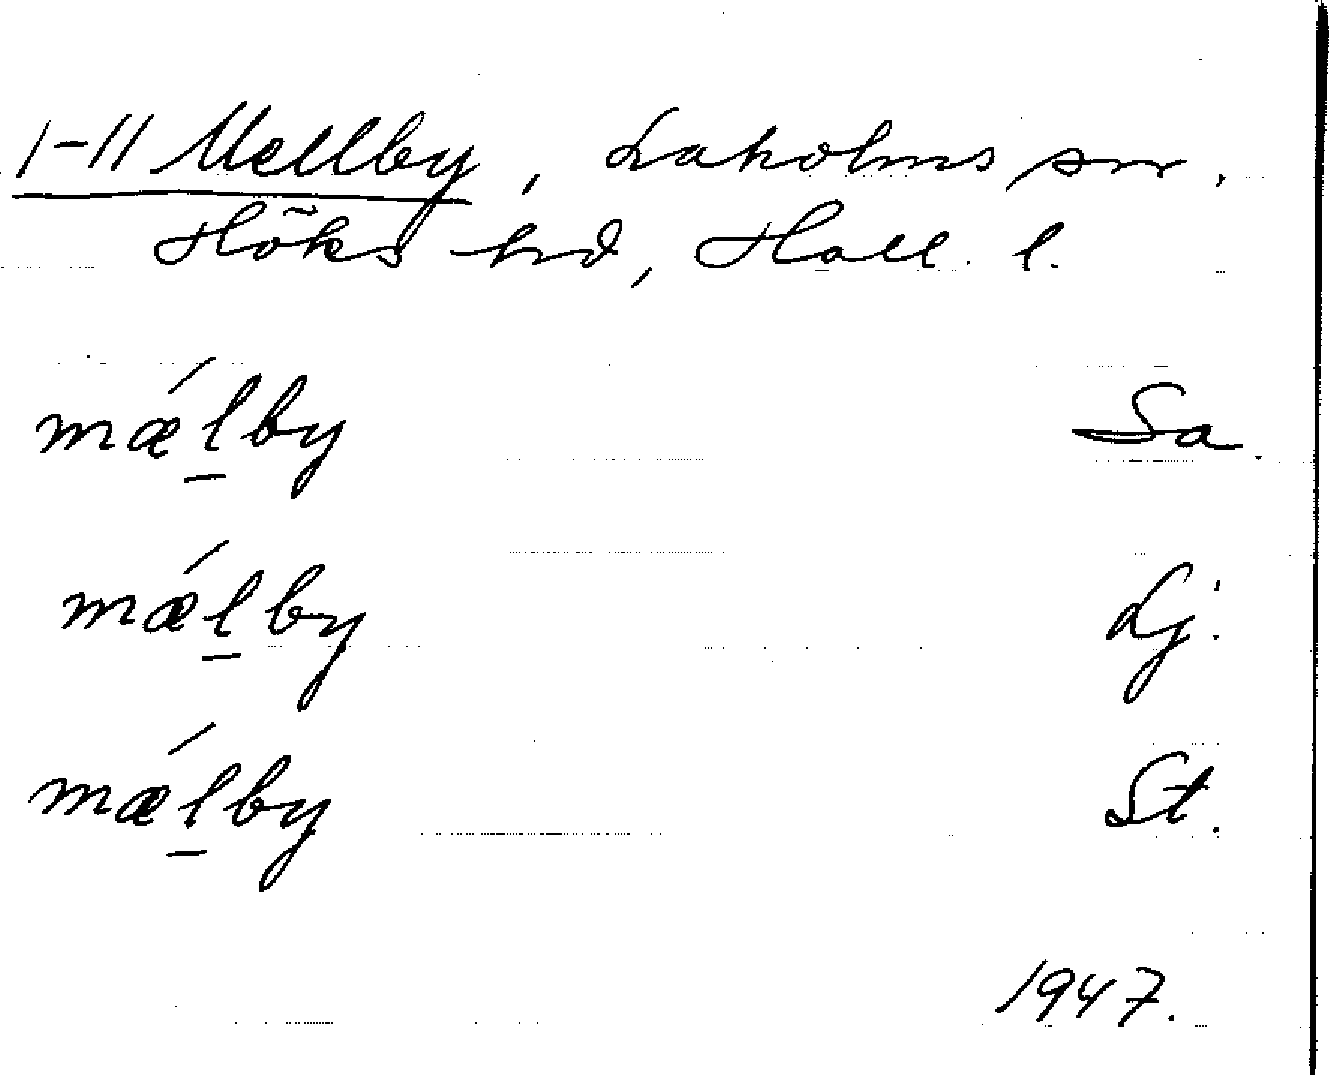 I-II Mellby, Laholms snr.
Höks hd, Hall. l.
mǽl̲by Sa.
mǽl̲by Lj.
mǽl̲by St.
1947.